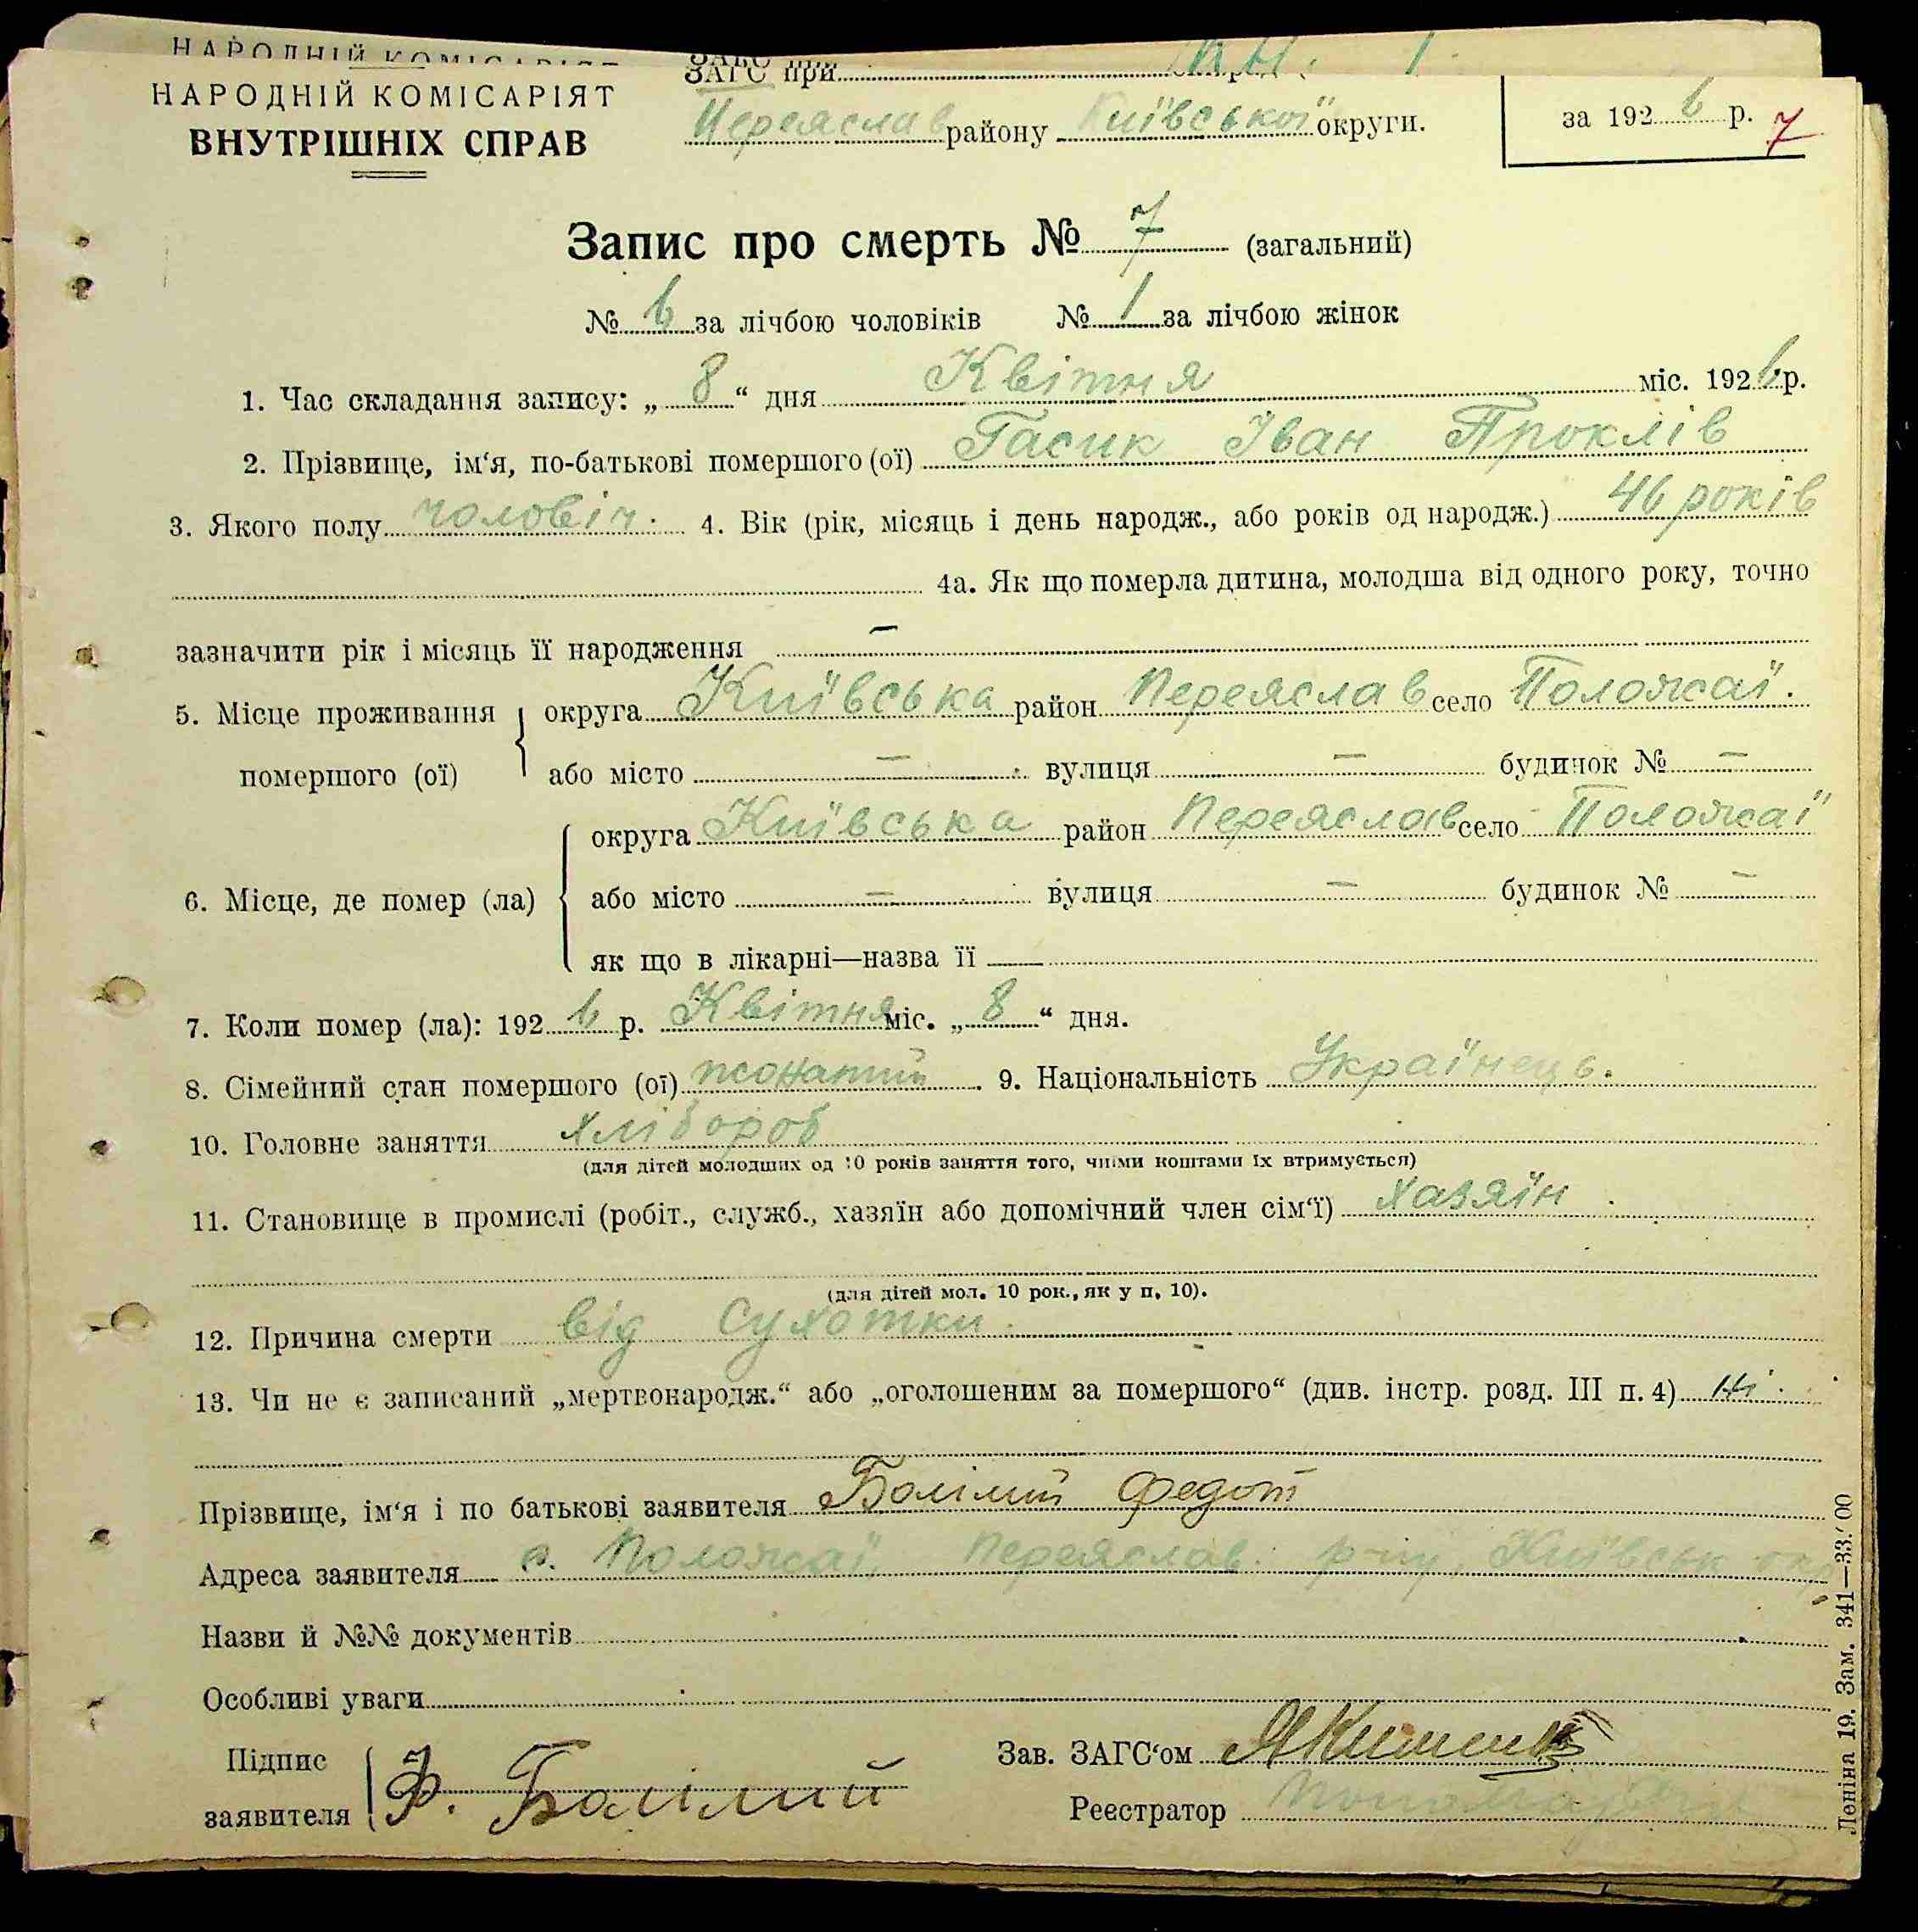 НАРОДНІЙ КОМІСАРІЯТ
ЗАГС при
НАРОДНІЙ КОМІСАРІЯТ
ВНУТРІШНІХ СПРАВ
Переяслав району Київської округи.
за 1926 р. 7
Запис про смерть № 7 (загальний)
№ 6 за лічбою чоловіків № 1 за лічбою жінок
1. Час складання запису: „ 8 “ дня Квітня міс. 1926 р.
2. Прізвище, ім‘я, по-батькові помершого (ої) Гасик Іван Проклів
3. Якого полу чоловіч. 4. Вік (рік, місяць і день народж., або років од народж.) 46 років
4а. Як що померла дитина, молодша від одного року, точно
зазначити рік і місяць її народження —
5. Місце проживання помершого (ої) округа Київська район Переяслав село Положаї.
або місто — вулиця — будинок № —
6. Місце, де помер (ла) округа Київська район Переяслав село Положаї
або місто — вулиця — будинок № —
як що в лікарні—назва її —
7. Коли помер (ла): 1926 р. Квітня міс. „ 8 “ дня.
8. Сімейний стан помершого (ої) жонатий. 9. Національність Українець.
10. Головне заняття хлібороб
(для дітей молодших од 10 років заняття того, чиїми коштами їх втримується)
11. Становище в промислі (робіт., служб., хазяїн або допомічний член сім‘ї) хазяїн
(для дітей мол. 10 рок., як у п. 10).
12. Причина смерти від Сухотки.
13. Чи не є записаний „мертвонародж.“ або „оголошеним за помершого“ (див. інстр. розд. III п. 4) ні.
Прізвище, ім‘я і по батькові заявителя Болілий Федот
Адреса заявителя с. Положаї, Переяслав. р-ну, Київськ окр
Назви й №№ документів
Особливі уваги
Підпис заявителя Ф. Болілий
Зав. ЗАГС‘ом
Реєстратор
Леніна 19. Зам. 341—33.'00